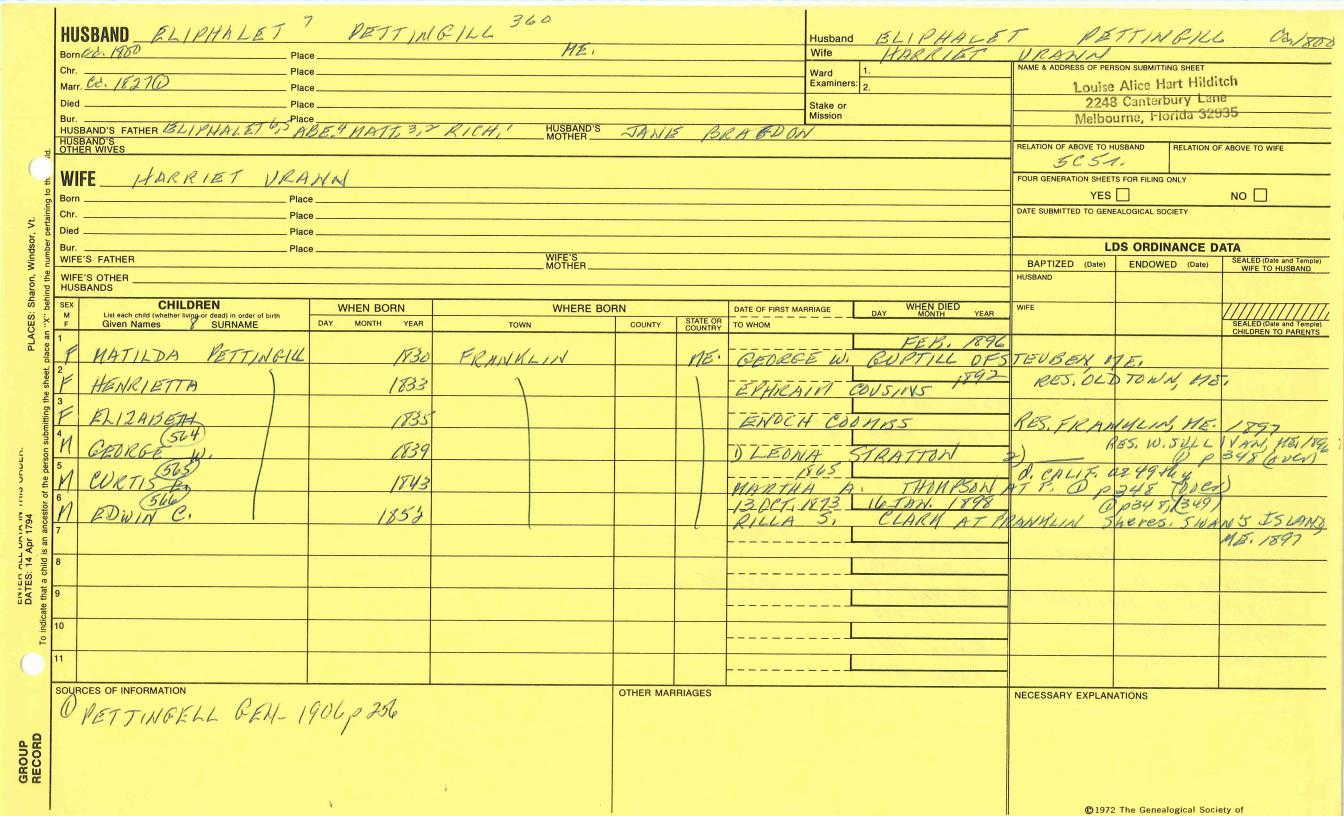 HUSBAND ELIPHALET 7 PETTINGILL 360
Born ca. 1800 Place ME.
Chr. Place
Marr. ca. 1827 ① Place
Died Place
Bur. Place
HUSBAND'S FATHER ELIPHALET 6,5 ABE,4 MATT,3,2 RICH,1 HUSBAND'S MOTHER JANE BRAGDON
HUSBAND'S OTHER WIVES
Husband ELIPHALET PETTINGILL Ca 1800
Wife HARRIET URANN
Ward Examiners: 1.
2.
Stake or Mission
NAME & ADDRESS OF PERSON SUBMITTING SHEET
Louise Alice Hart Hilditch
2248 Canterbury Lane
Melbourne, Florida 32935
RELATION OF ABOVE TO HUSBAND RELATION OF ABOVE TO WIFE
FOUR GENERATION SHEETS FOR FILING ONLY
YES NO
DATE SUBMITTED TO GENEALOGICAL SOCIETY
WIFE HARRIET URANN
Born Place
Chr. Place
Died Place
Bur. Place
WIFE'S FATHER WIFE'S MOTHER
WIFE'S OTHER HUSBANDS
LDS ORDINANCE DATA
BAPTIZED (Date) ENDOWED (Date) SEALED (Date and Temple) WIFE TO HUSBAND
HUSBAND
WIFE
SEALED (Date and Temple) CHILDREN TO PARENTS
SEX M F
CHILDREN
List each child (whether living or dead) in order of birth
Given Names 8 SURNAME
WHEN BORN
DAY MONTH YEAR
WHERE BORN
TOWN COUNTY STATE OR COUNTRY
DATE OF FIRST MARRIAGE
TO WHOM
WHEN DIED
DAY MONTH YEAR
1 FEB. 1896
F MATILDA PETTINGILL 1830 FRANKLIN ME. GEORGE W. GUPTILL OF STEUBEN, ME.
2 1892 RES. OLDTOWN, ME.
F HENRIETTA 1833 EPHRAIM COUSINS
3
F ELIZABETH 1835 ENOCH COOMBS RES. FRANKLIN, ME. 1897
4 564 RES. W. SULLIVAN, ME. 1896
M GEORGE W. 1839 LEONA STRATTON 2) ① p 348 (OVER)
5 565 1865
M CURTIS 1843 MARTHA A. THOMPSON AT ① p 348 (OVER)
6 566 13 OCT. 1873 16 JAN. 1898 ① p 348, (349)
M EDWIN C. 1852 RILLA S. CLARK AT FRANKLIN She res. SWAN'S ISLAND,
ME. 1897
7
8
9
10
11
SOURCES OF INFORMATION
① PETTINGELL GEN- 1906 p 256
OTHER MARRIAGES
NECESSARY EXPLANATIONS
©1972 The Genealogical Society of
PLACES: Sharon, Windsor, Vt.
DATES: 14 Apr 1794
To indicate that a child is an ancestor of the person submitting the sheet, place an "X" behind the number pertaining to
GROUP RECORD